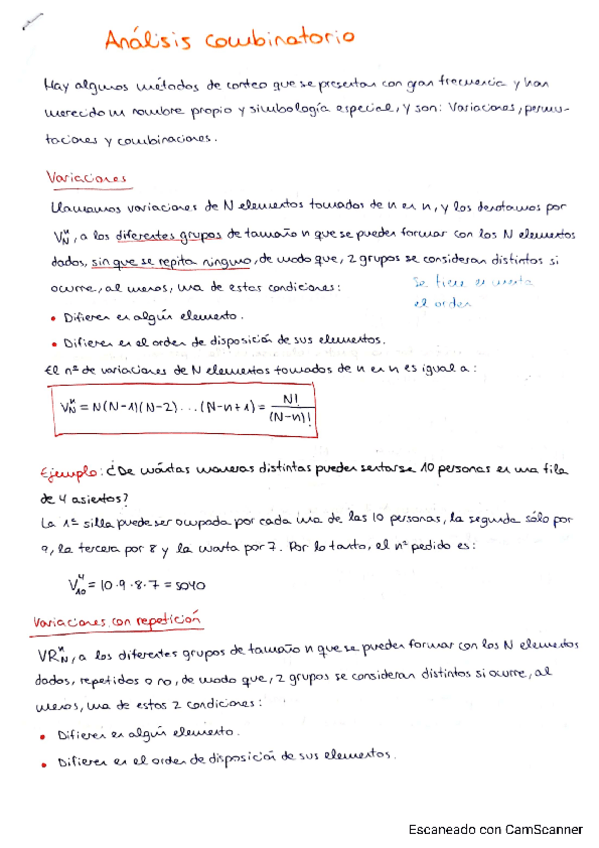 Análisis combinatorio
Hay algunos métodos de conteo que se presentan con gran frecuencia y han
merecido un nombre propio y simbología especial, y son: Variaciones, permu-
taciones y combinaciones.
Variaciones
Llamamos variaciones de N elementos tomados de n en n, y los denotamos por
V_N^n, a los diferentes grupos de tamaño n que se pueden formar con los N elementos
dados, sin que se repita ninguno, de modo que, 2 grupos se consideran distintos si
ocurre, al menos, una de estas condiciones:
se tiene en cuenta
el orden
• Difieren en algún elemento.
• Difieren en el orden de disposición de sus elementos.
El nº de variaciones de N elementos tomados de n en n es igual a:
V_N^n = N(N-1)(N-2)...(N-n+1) = N!/(N-n)!
Ejemplo: ¿De cuántas maneras distintas pueden sentarse 10 personas en una fila
de 4 asientos?
La 1ª silla puede ser ocupada por cada una de las 10 personas, la segunda sólo por
9, la tercera por 8 y la cuarta por 7. Por lo tanto, el nº pedido es:
V_10^4 = 10·9·8·7 = 5040
Variaciones con repetición
VR_N^n, a los diferentes grupos de tamaño n que se pueden formar con los N elementos
dados, repetidos o no, de modo que, 2 grupos se consideran distintos si ocurre, al
menos, una de estas 2 condiciones:
• Difieren en algún elemento.
• Difieren en el orden de disposición de sus elementos.
Escaneado con CamScanner